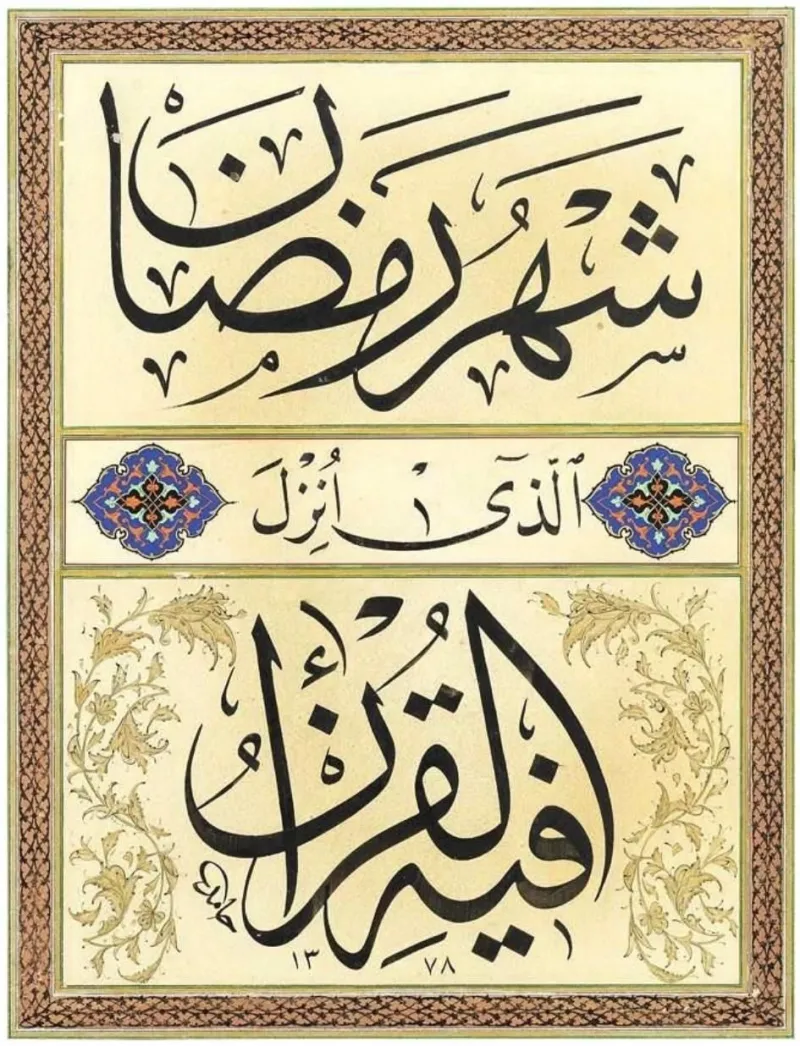 شَهْرُ رَمَضَانَ
ٱلَّذٓى اُنْزِلَ
فِيهِ الْقُرْأٰنُ
حامد
١٣٧٨